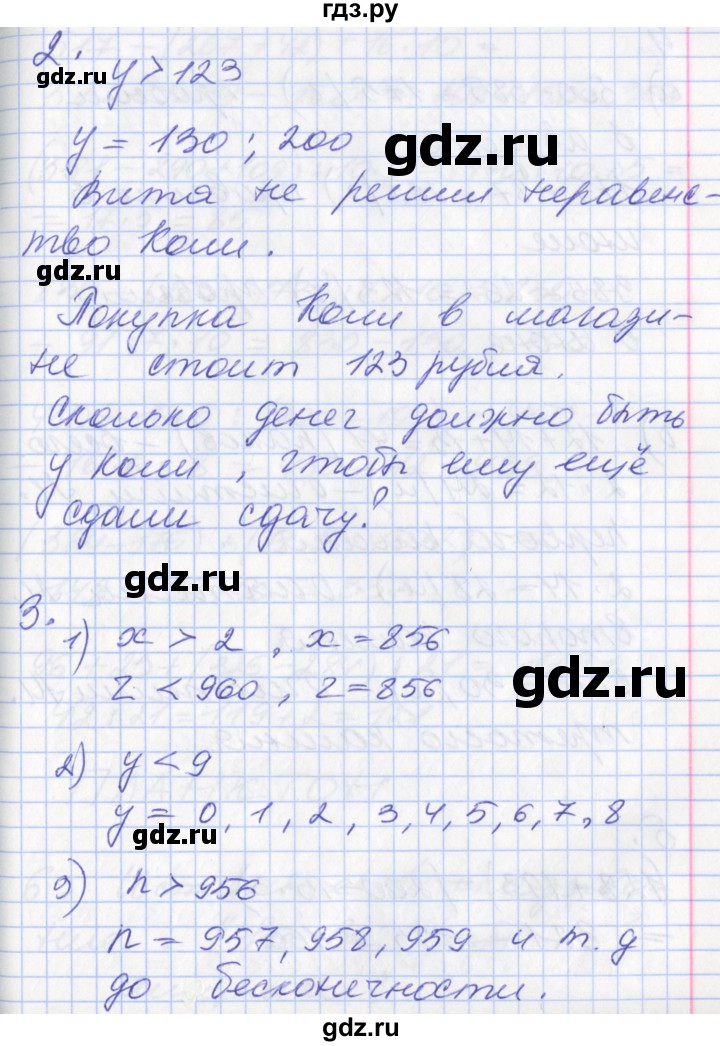 гдз.ру
2. y > 123
gdz.ru
y = 130 ; 200
gdz.ru
Витя не решил неравенс-
тво Коли.
gdz.ru
Покупка Коли в магази-
не стоит 123 рубля.
Сколько денег должно быть
у Коли, чтобы ему ещё
сдали сдачу?
gdz.ru
3.
1) x > 2 , x = 856
gdz.ru
z < 960 , z = 856
2) y < 9
y = 0, 1, 2, 3, 4, 5, 6, 7, 8
gdz.ru
3) n > 956
n = 957, 958, 959 и т. д
до бесконечности.
gdz.ru